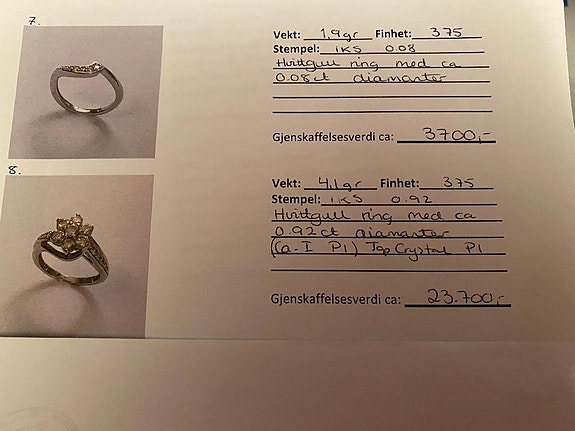 7.
Vekt: 1,9gr Finhet: 375
Stempel: IKS 0.08
Hvittgull ring med ca
0.08ct diamanter
Gjenskaffelsesverdi ca: 3700,-
8.
Vekt: 4,1gr Finhet: 375
Stempel: IKS 0.92
Hvittgull ring med ca
0.92ct diamanter
(ca. I P1) Top Crystal P1
Gjenskaffelsesverdi ca: 23.700,-